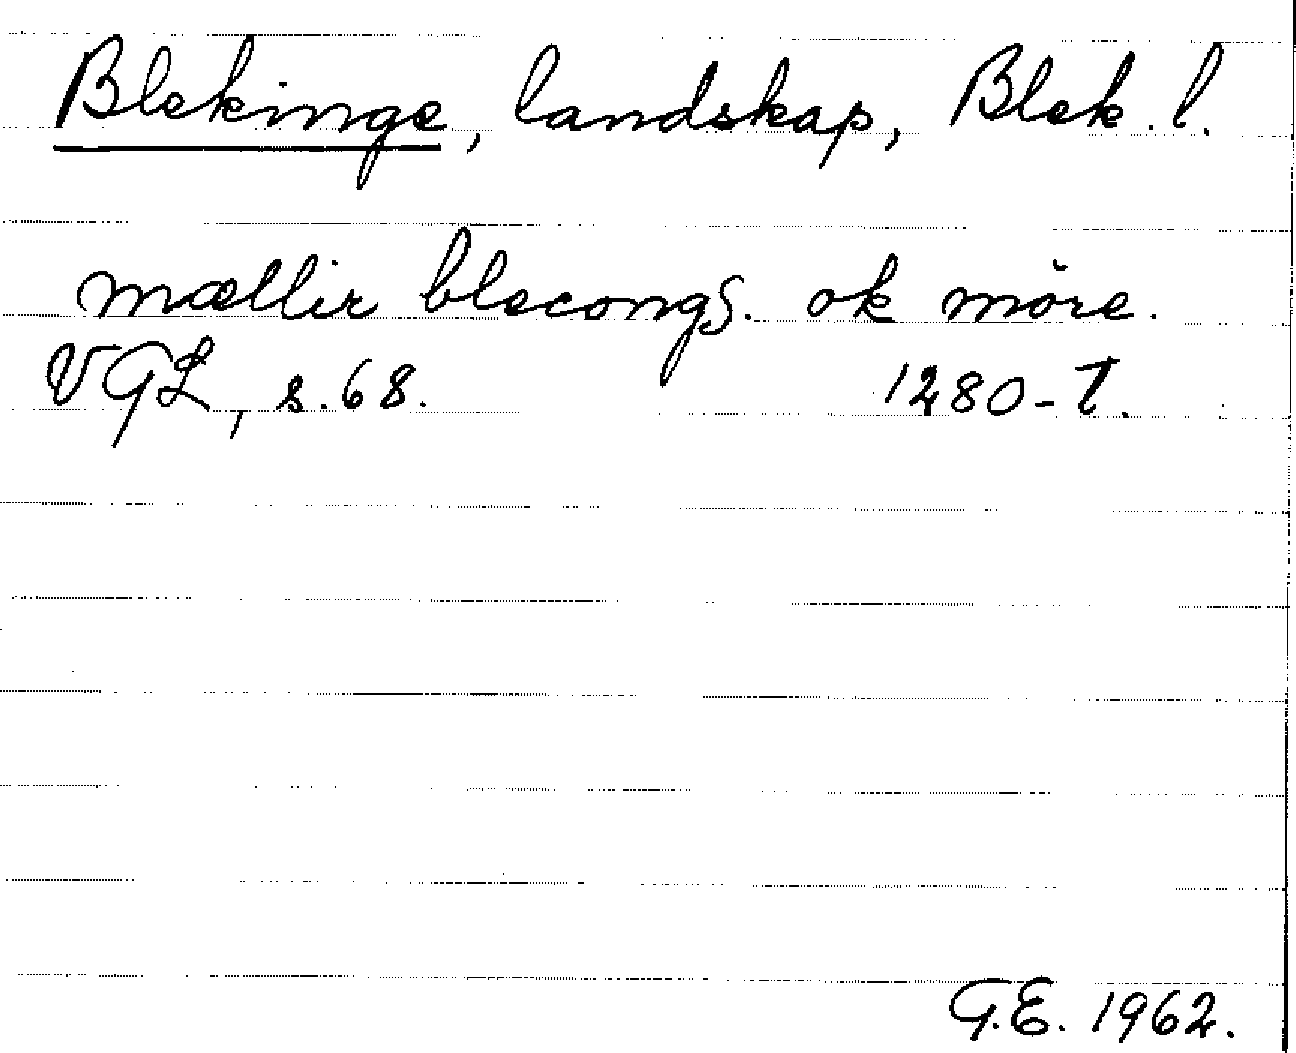 Blekinge, landskap, Blek. l.
mællir blecongs. ok möre.
VGL, s. 68. 1280-T.
G.E. 1962.